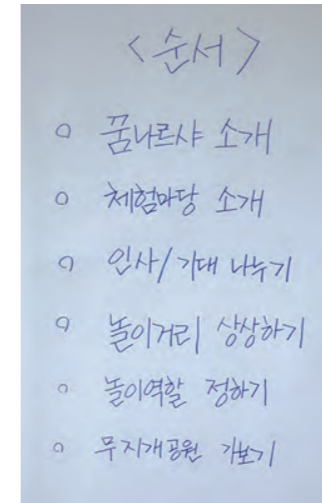 <순서>
○ 꿈나르샤 소개
○ 체험마당 소개
○ 인사/기대 나누기
○ 놀이거리 상상하기
○ 놀이역할 정하기
○ 무지개공원 가보기